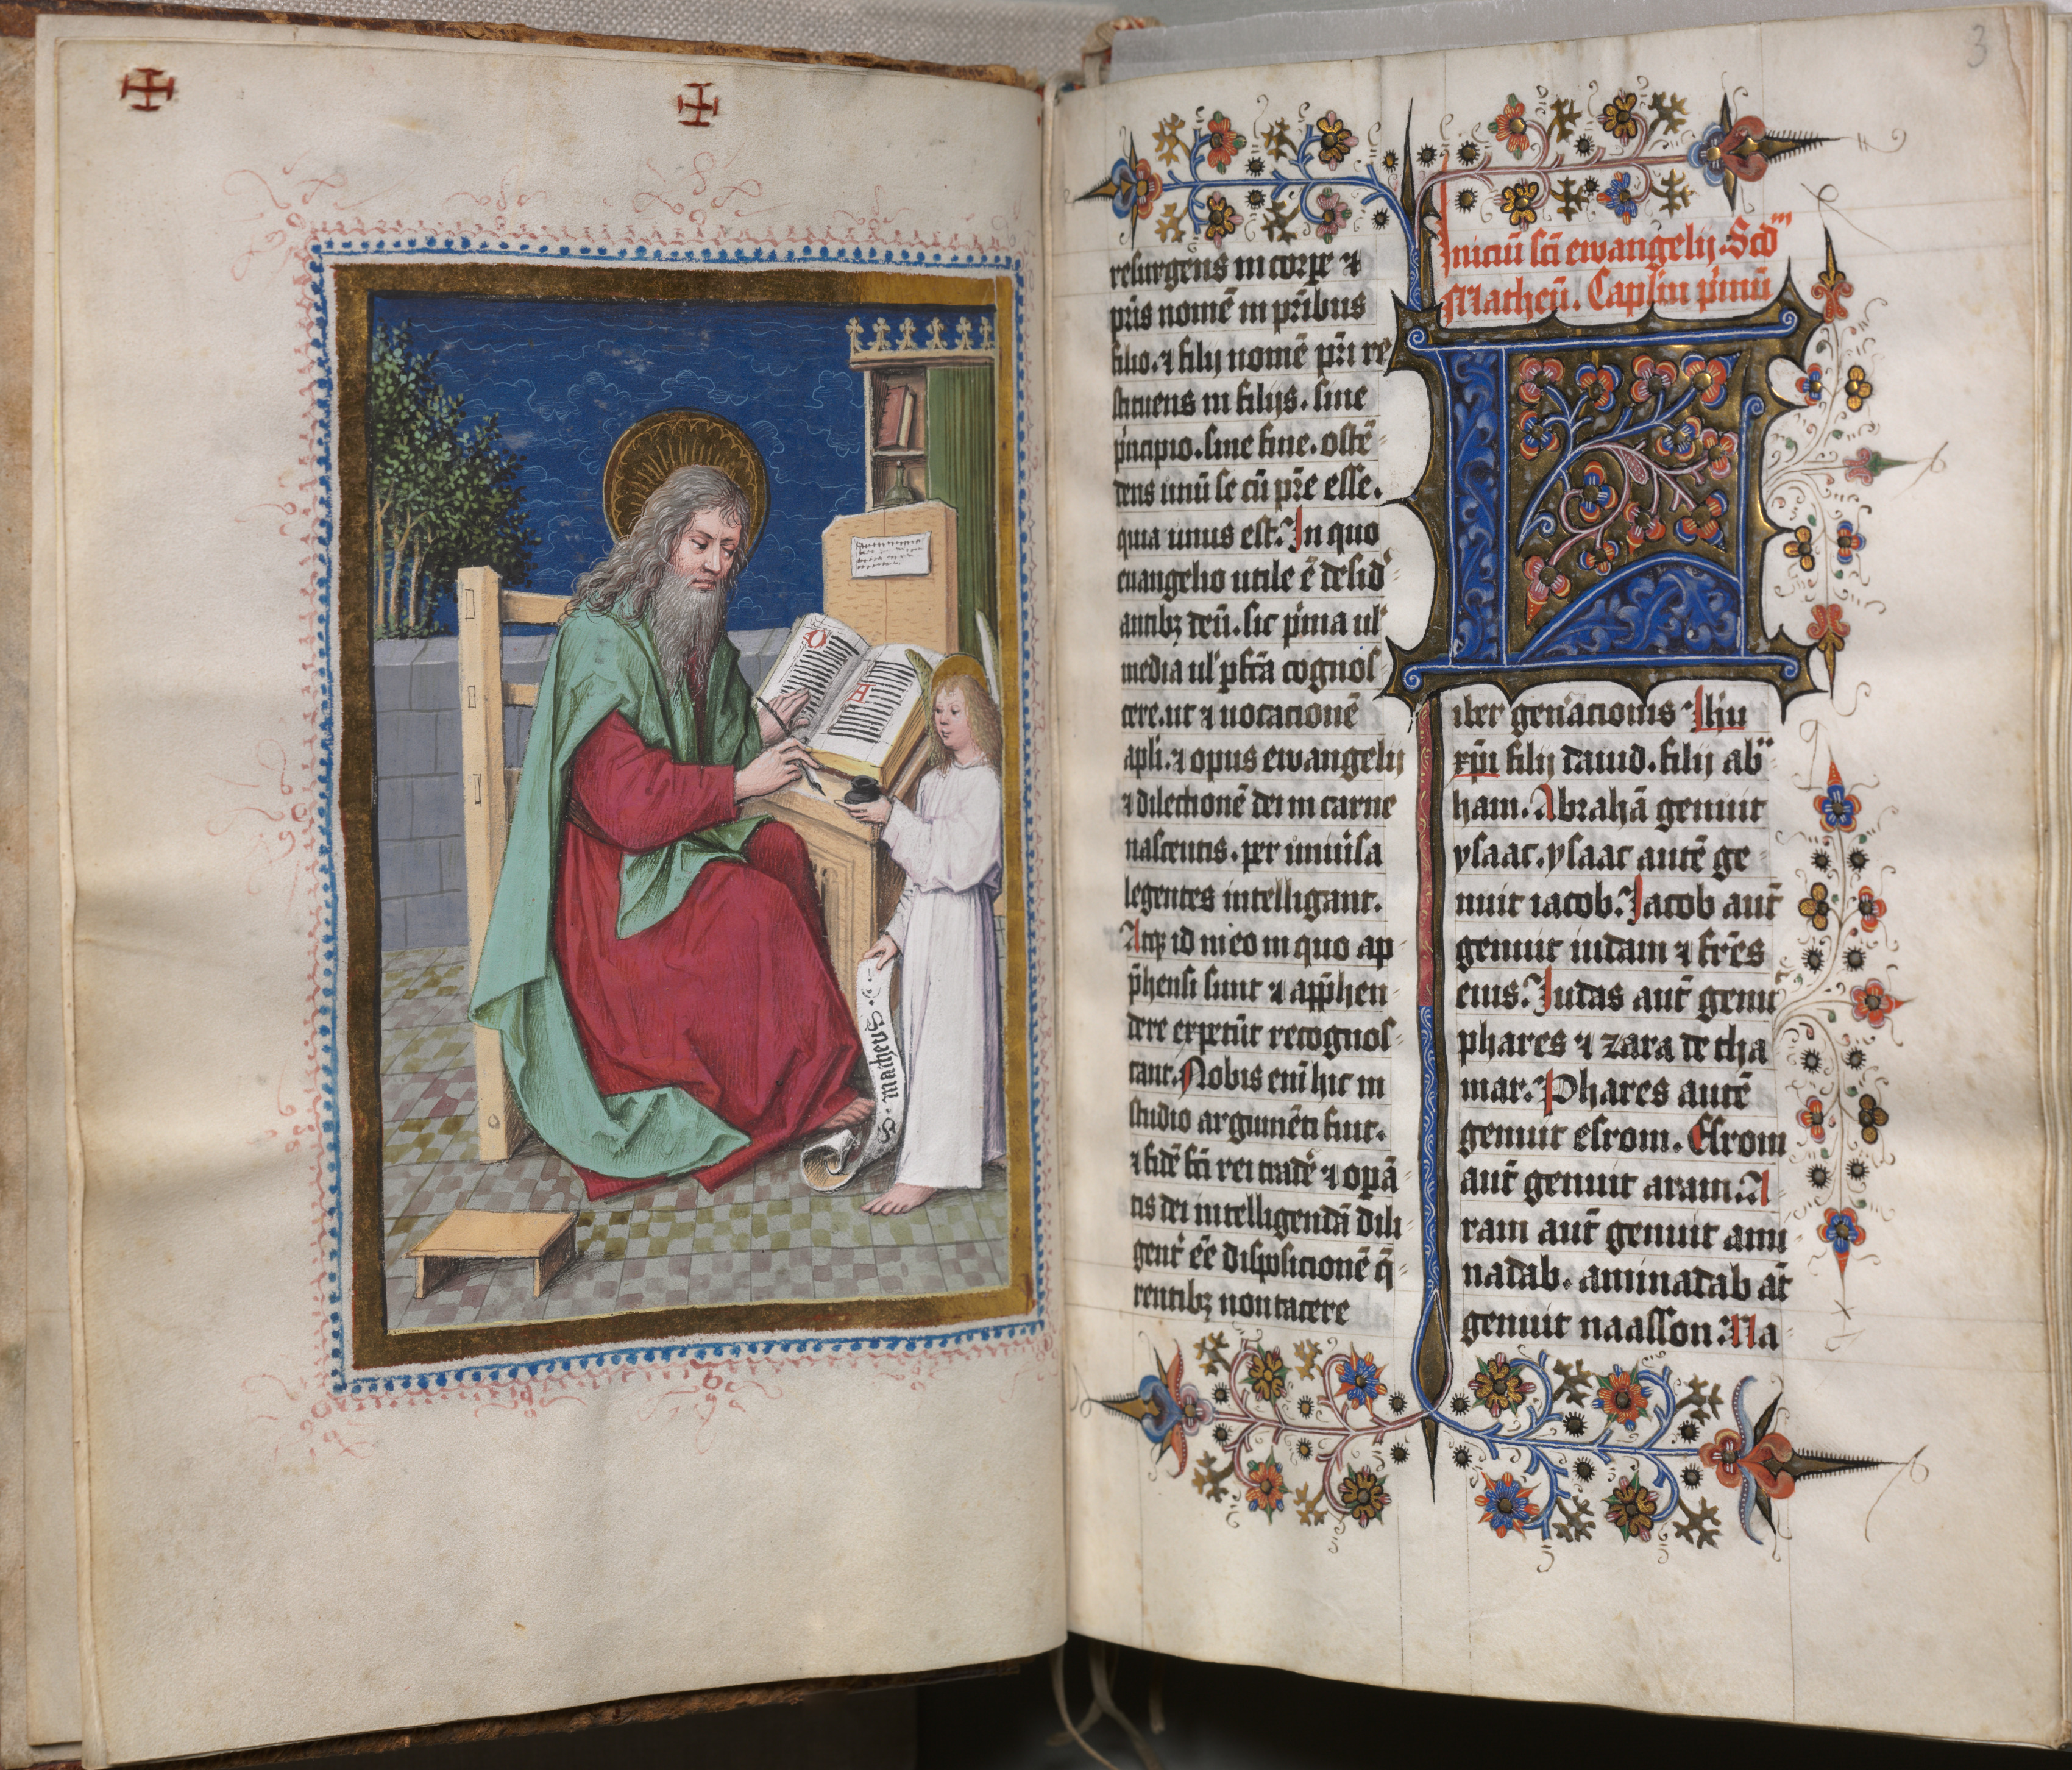 S · matheus ·
3
resurgens in corpe ⁊
pr̄is nomē in pr̄ibus
filio. ⁊ filij nomē pr̄i re
stituens in filijs. sine
p̄ncipio. sine fine. ostē-
dens unū se cū pr̄e esse.
quia unus est. In quo
euangelio utile ē desid'
antibꝫ deū. sic p̄ma ul'
media ul' pfc̄a cognos-
cere. ut ⁊ uocacionē
apl'i. ⁊ opus ewangelij
⁊ dilectionē dei in carne
nascentis. per uniūsa
legentes intelligant.
Atqꝫ id in eo in quo ap-
p̄hensi sunt ⁊ app̄hen-
dere expetūt recognos-
cant. Nobis enī hic in
studio argumēti fuit.
⁊ fidē fc̄i rei tradē ⁊ opā-
tis dei intelligendā dili-
gent' eē disp̄sicionē q̄-
rentibꝫ non tacere
Iniciū sc̄i ewangelij. Scd'm
Matheū. Capl'm p̄mū
L
iber gen̄acionis Ih̄u
xp̄i filij dauid. filij ab-
ham. Abrahā genuit
ysaac. ysaac autē ge-
nuit iacob. Iacob aut̄
genuit iudam ⁊ fr̄es
eius. Iudas aut̄ genu̇t
phares ⁊ zara de tha-
mar. Phares autē
genuit esrom. Esrom
aut̄ genuit aram. A-
ram aut̄ genuit ami-
nadab. aminadab at̄
genuit naasson. Na-